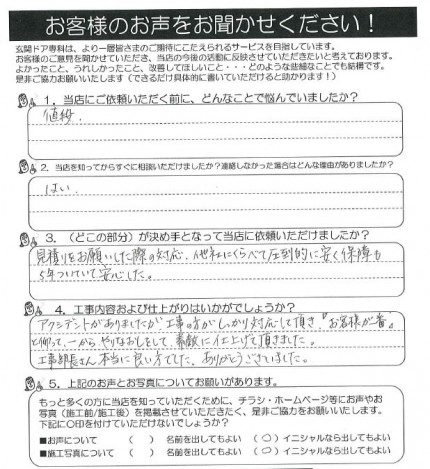 お客様のお声をお聞かせください！
玄関ドア専科は、より一層皆さまのご期待にこたえられるサービスを目指しています。
お客様のご意見を聞かせていただき、当店の今後の活動に反映させていただきたいと考えております。
よかったこと、うれしかったこと、改善してほしいこと・・・どのような些細なことでも結構です。
是非ご協力お願いいたします（できるだけ具体的に書いていただけると助かります！）
1．当店にご依頼いただく前に、どんなことで悩んでいましたか？
値段．
2．当店を知ってからすぐに相談いただけましたか？連絡しなかった場合はどんな理由がありましたか？
はい．
3．（どこの部分）が決め手となって当店に依頼いただけましたか？
見積りをお願いした際の対応．他社にくらべて圧倒的に安く保障も
5年ついていて安心した。
4．工事内容および仕上がりはいかがでしょうか？
アクシデントがありましたが工事の方がしっかり対応して頂き、『お客様が一番』
と仰って、一から、やりなおしをして、素敵に仕上げて頂きました。
工事部長さん本当に良い方でした。ありがとうございました。
5．上記のお声とお写真についてお願いがあります。
もっと多くの方に当店を知っていただくために、チラシ・ホームページ等にお声やお
写真（施工前/施工後）を掲載させていただきたく、是非ご協力をお願いいたします。
下記に〇印を付けていただけないでしょうか？
■お声について （ ） 名前を出してもよい （〇）イニシャルなら出してもよい
■施工写真について （ ） 名前を出してもよい （〇）イニシャルなら出してもよい